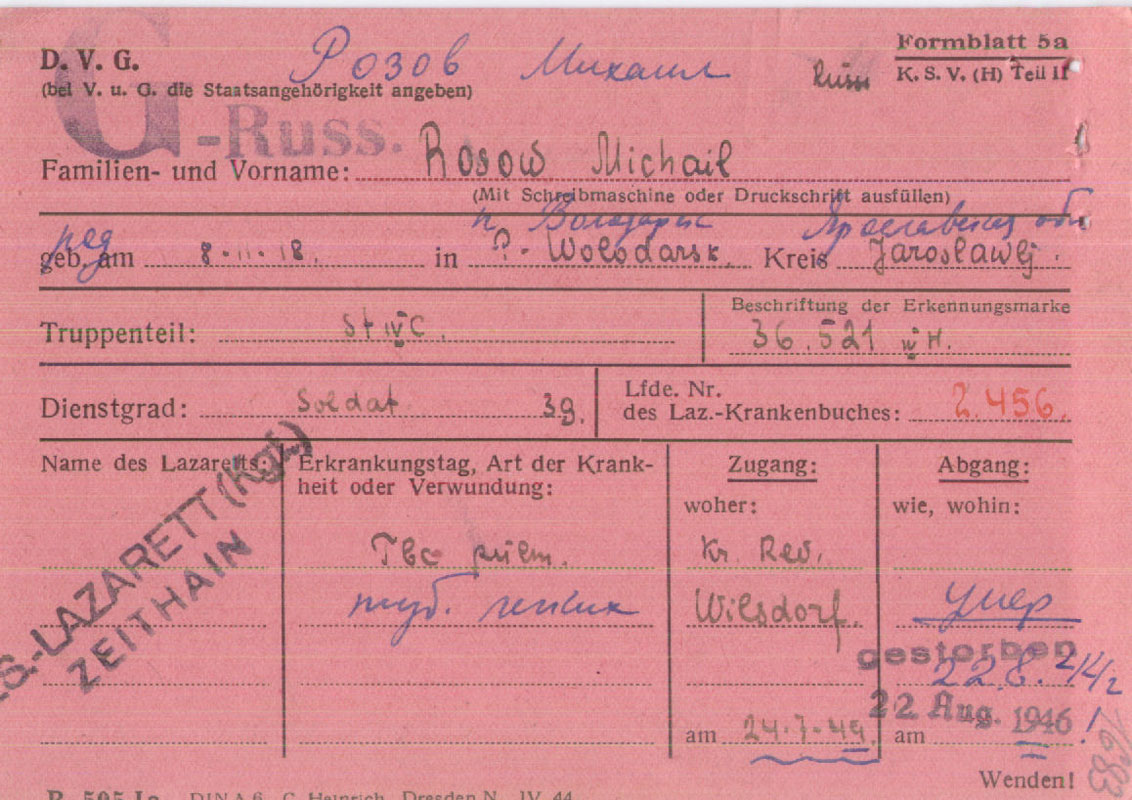 D. V. G. Розов Михаил Formblatt 5a
(bei V. u. G. die Staatsangehörigkeit angeben) Russ K. S. V. (H) Teil II
G-Russ.
Familien- und Vorname: Rosow Michail
(Mit Schreibmaschine oder Druckschrift ausfüllen)
п Володарск Ярославская обл
geb. am 8.11.18. in P. Wolodarsk. Kreis Jaroslawlj.
Beschriftung der Erkennungsmarke
Truppenteil: St IV C. 36.521 IV H.
Lfde. Nr.
Dienstgrad: Soldat 39. des Laz.-Krankenbuches: 2.456.
Name des Lazaretts: Erkrankungstag, Art der Krank- Zugang: Abgang:
heit oder Verwundung:
woher: wie, wohin:
S.-LAZARETT (Kgf.)
ZEITHAIN
Tbc pulm. Kr. Rev.
туб. легких Wilsdorf. умер
gestorben
22.8.
22 Aug. 1946 !
am 24.7.44. am
1683
Wenden!
R 505 Ia DIN A 6 C. Heinrich, Dresden N. IV. 44